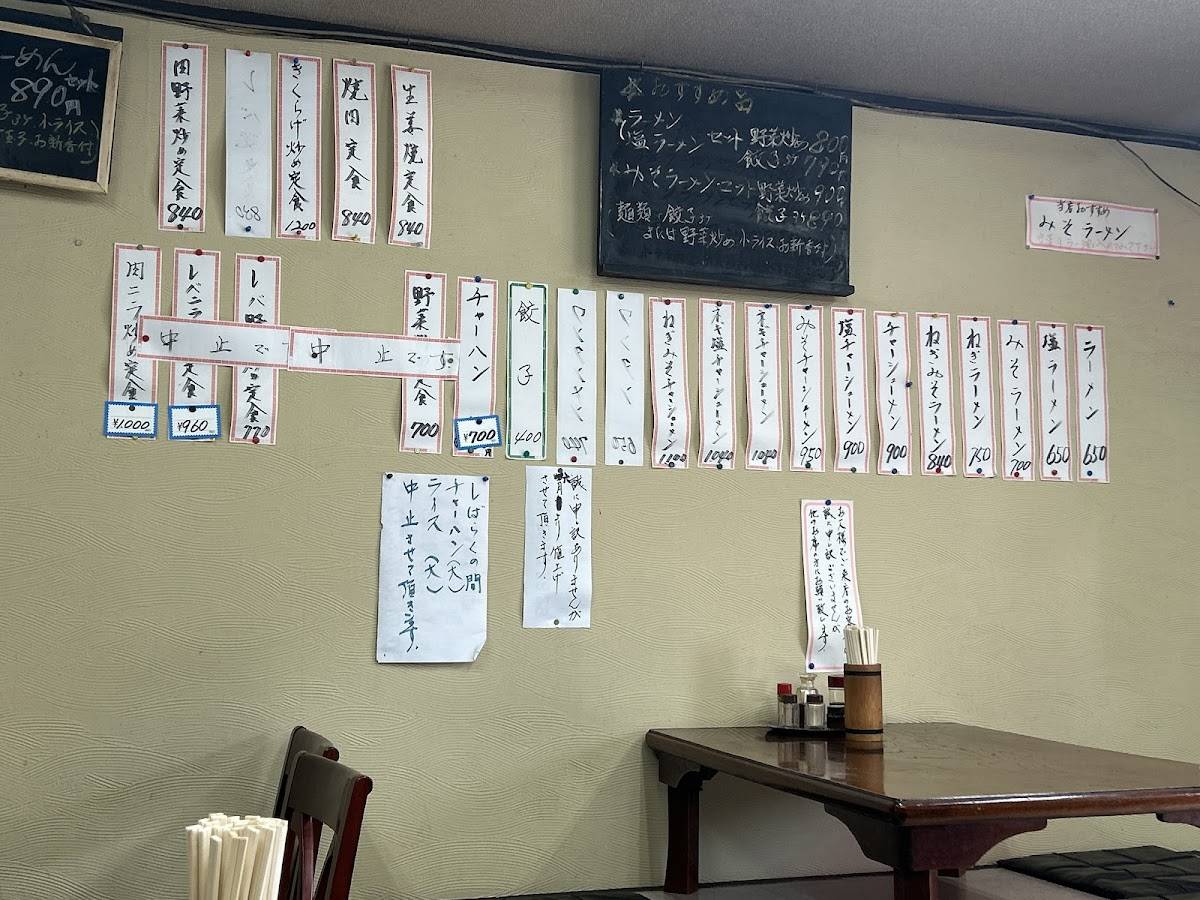 ーめん
セット
890円
生姜焼定食 840
焼肉定食 840
きくらげ炒め定食 1200
肉野菜炒め定食 840
おすすめ品
ラーメン
塩ラーメン セット 野菜炒め 800
餃子3ケ
みそラーメンセット 野菜炒め 900
餃子3ケ
麺類・餃子3ケ
または野菜炒め 小ライス お新香付)
当店おすすめ
みそラーメン
ラーメン 650
塩ラーメン 650
みそラーメン 700
ねぎラーメン 750
ねぎみそラーメン 840
チャーシューメン 900
塩チャーシューメン 900
みそチャーシューメン 950
ネギチャーシューメン 1040
ネギ塩チャーシューメン 1040
ねぎみそチャーシューメン 1100
餃子 400
チャーハン ¥700
野菜 定食 700
レバ 定食 770
レバニラ 定食 ¥960
肉ニラ炒め定食 ¥1,000
中止です
中止です
しばらくの間
チャーハン(大)
ライス(大)
中止させて頂きます。
誠に申し訳ありませんが
値上げ
させて頂きます。
誠に申し訳ございませんが
他のお席の方にお願い致します